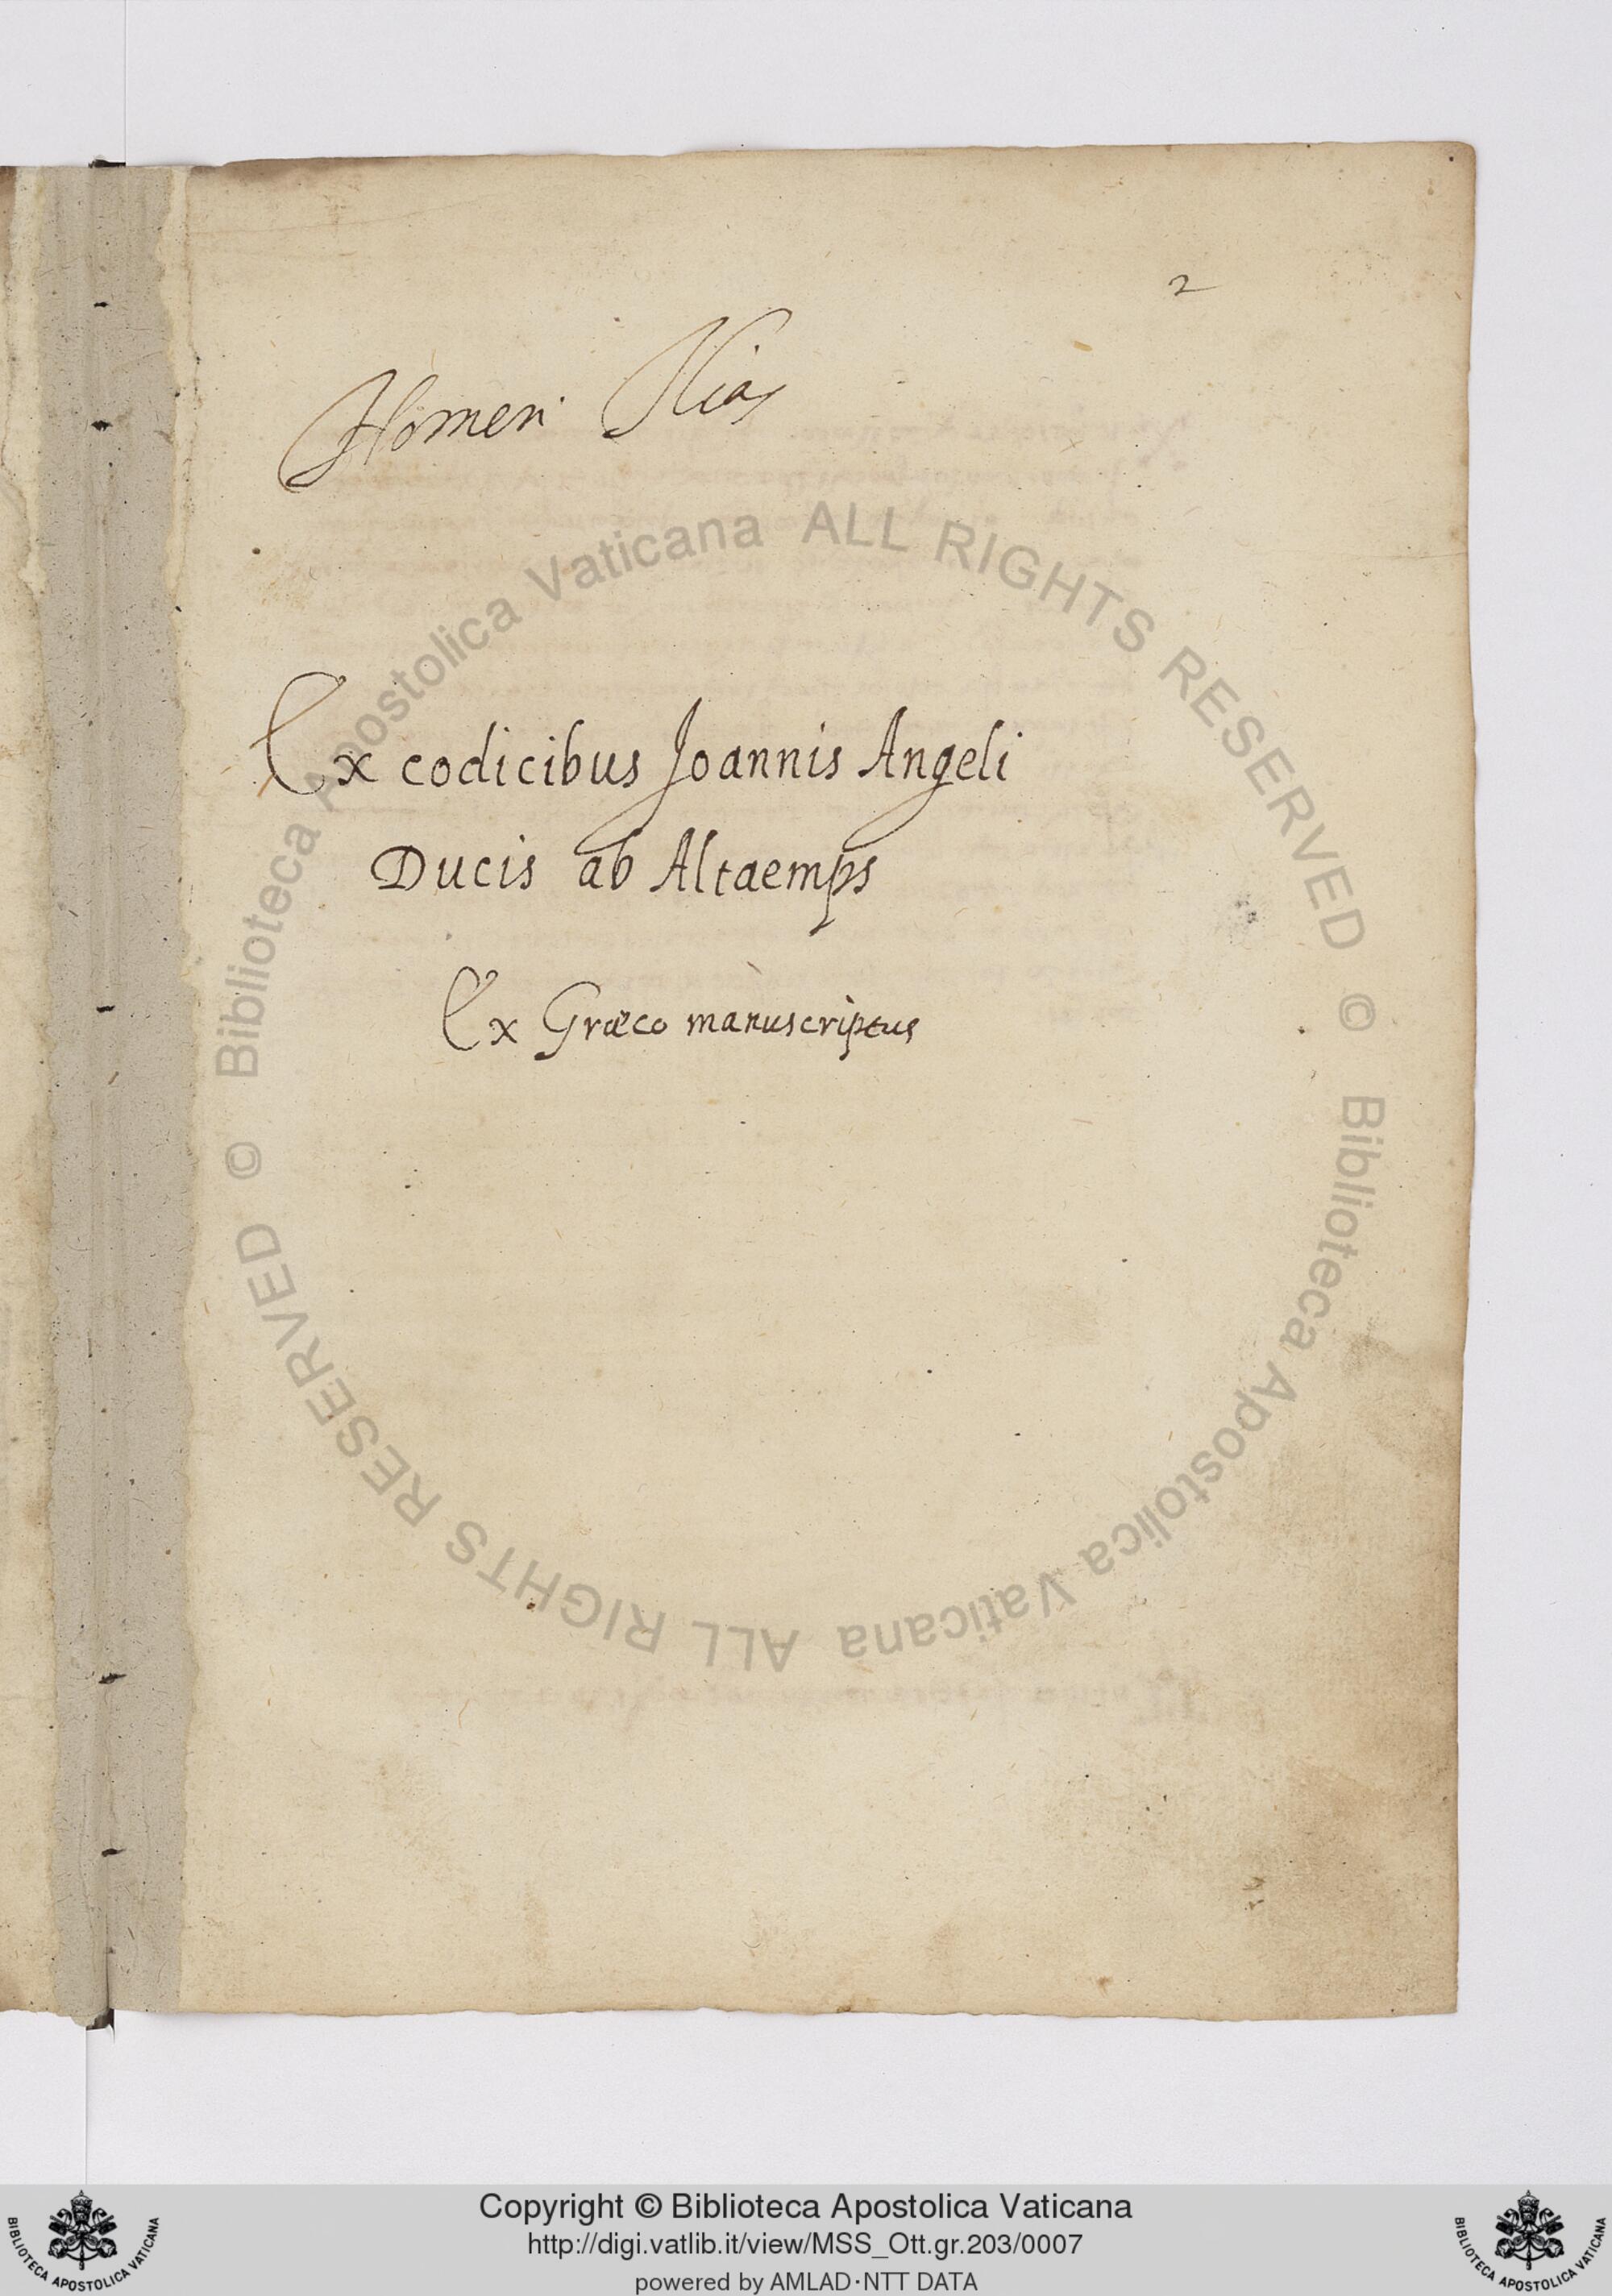 2
Homeri Ilias
Ex codicibus Joannis Angeli
Ducis ab Altaemps
Ex Græco manuscriptus
© Biblioteca Apostolica Vaticana ALL RIGHTS RESERVED © Biblioteca Apostolica Vaticana ALL RIGHTS RESERVED
Copyright © Biblioteca Apostolica Vaticana
http://digi.vatlib.it/view/MSS_Ott.gr.203/0007
powered by AMLAD·NTT DATA
BIBLIOTECA APOSTOLICA VATICANA
BIBLIOTECA APOSTOLICA VATICANA